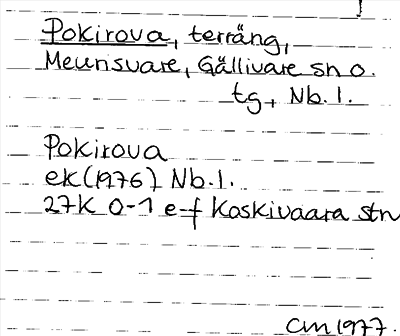 Pokirova, terräng,
Meunsvare, Gällivare sn o.
tg, Nb.l.
Pokirova
ek(1976) Nb.l.
27K 0-1 e-f Koskivaara stn
CM 1977.